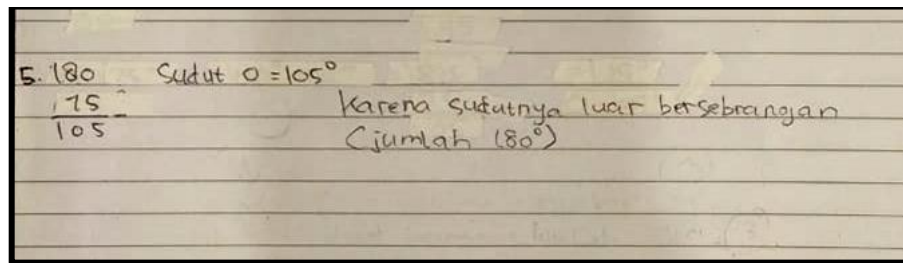 5. 180 Sudut O = 105°
75 -
105
Karena sudutnya luar bersebrangan
(jumlah 180°)